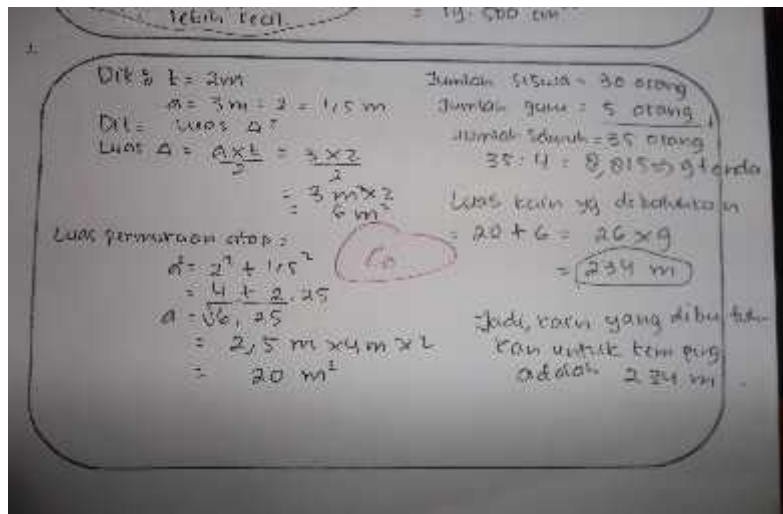 lebih kecil
= 19.500 cm
2.
Dik : t = 2m
a = 3m : 2 = 1,5 m
Dit = Luas Δ?
Luas Δ = a x t / 2 = 3 x 2 / 2
= 3 m² x 2
= 6 m²
Luas permukaan atap =
a² = 2² + 1,5²
= 4 + 2,25
a = √6,25
= 2,5 m x 4 m x 2
= 20 m²
Jumlah siswa = 30 orang
Jumlah guru = 5 orang
Jumlah seluruh = 35 orang
35 : 4 = 8,815 => 9 tenda
Luas kain yg dibutuhkan
= 20 + 6 = 26 x 9
= 234 m
Jadi, kain yang dibutuh
kan untuk
adalah 234 m